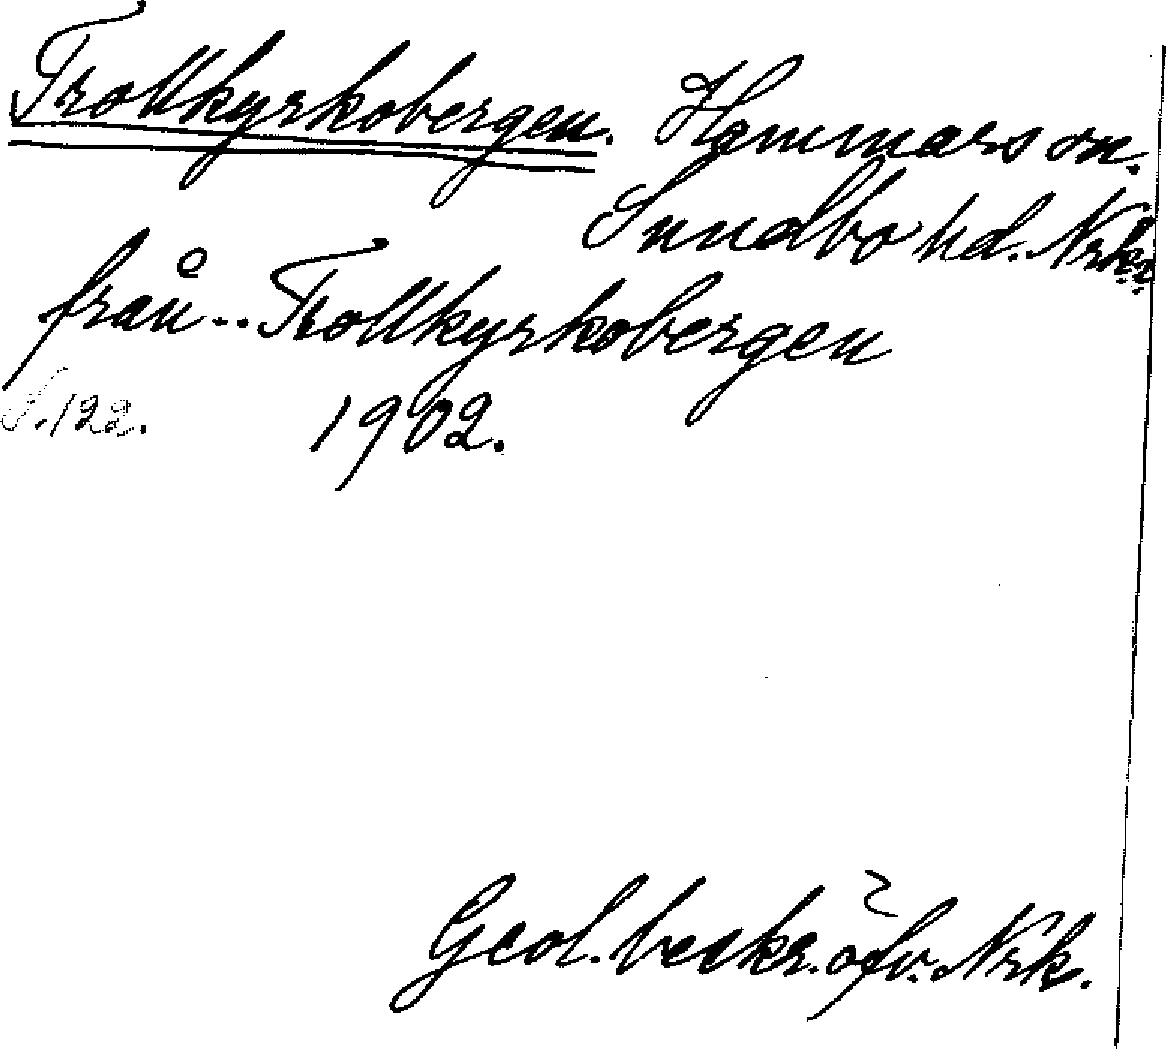 Trollkyrkobergen. Hammars sn.
Sundbo hd. Nrke
från.. Trollkyrkobergen
S. 122. 1902.
Geol. beskr. öfv. Nrk.